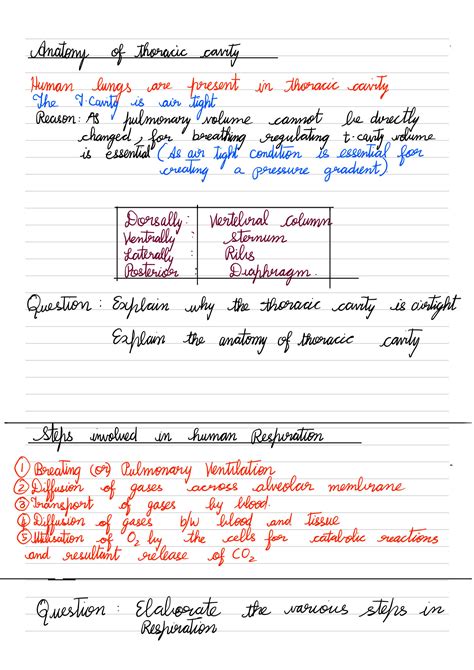 Anatomy of thoracic cavity
Human lungs are present in thoracic cavity
The T.Cavity is air tight
Reason: As pulmonary volume cannot be directly
changed, for breathing regulating t.cavity volume
is essential (As air tight condition is essential for
creating a pressure gradient)
Dorsally: Vertebral column
Ventrally: Sternum
Laterally: Ribs
Posterior: Diaphragm.
Question: Explain why the thoracic cavity is airtight
Explain the anatomy of thoracic cavity
Steps involved in human Respiration
① Breating (or) Pulmonary Ventilation
② Diffusion of gases across alveolar membrane
③ Transport of gases by blood.
④ Diffusion of gases b/w blood and tissue
⑤ Utilisation of O2 by the cells for catabolic reactions
and resultant release of CO2
Question: Elaborate the various steps in
Respiration